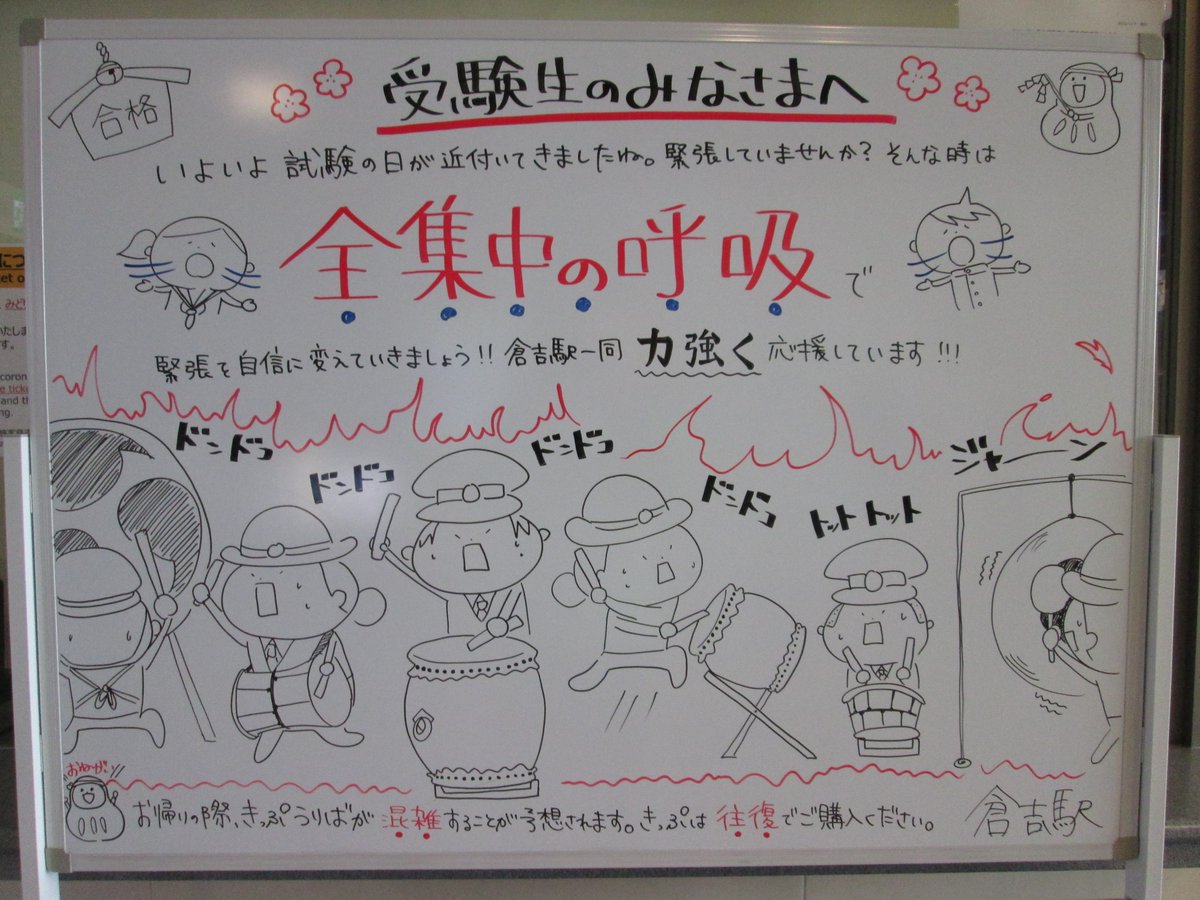 合格
受験生のみなさまへ
いよいよ 試験の日が近付いてきましたね。緊張していませんか? そんな時は
全集中の呼吸で
緊張を自信に変えていきましょう!! 倉吉駅一同 力強く 応援しています!!!
ドンドコ
ドンドコ
ドンドコ
ドンドコ
トットトット
ジャーン
お帰りの際、きっぷうりばが混雑することが予想されます。きっぷは往復でご購入ください。
倉吉駅